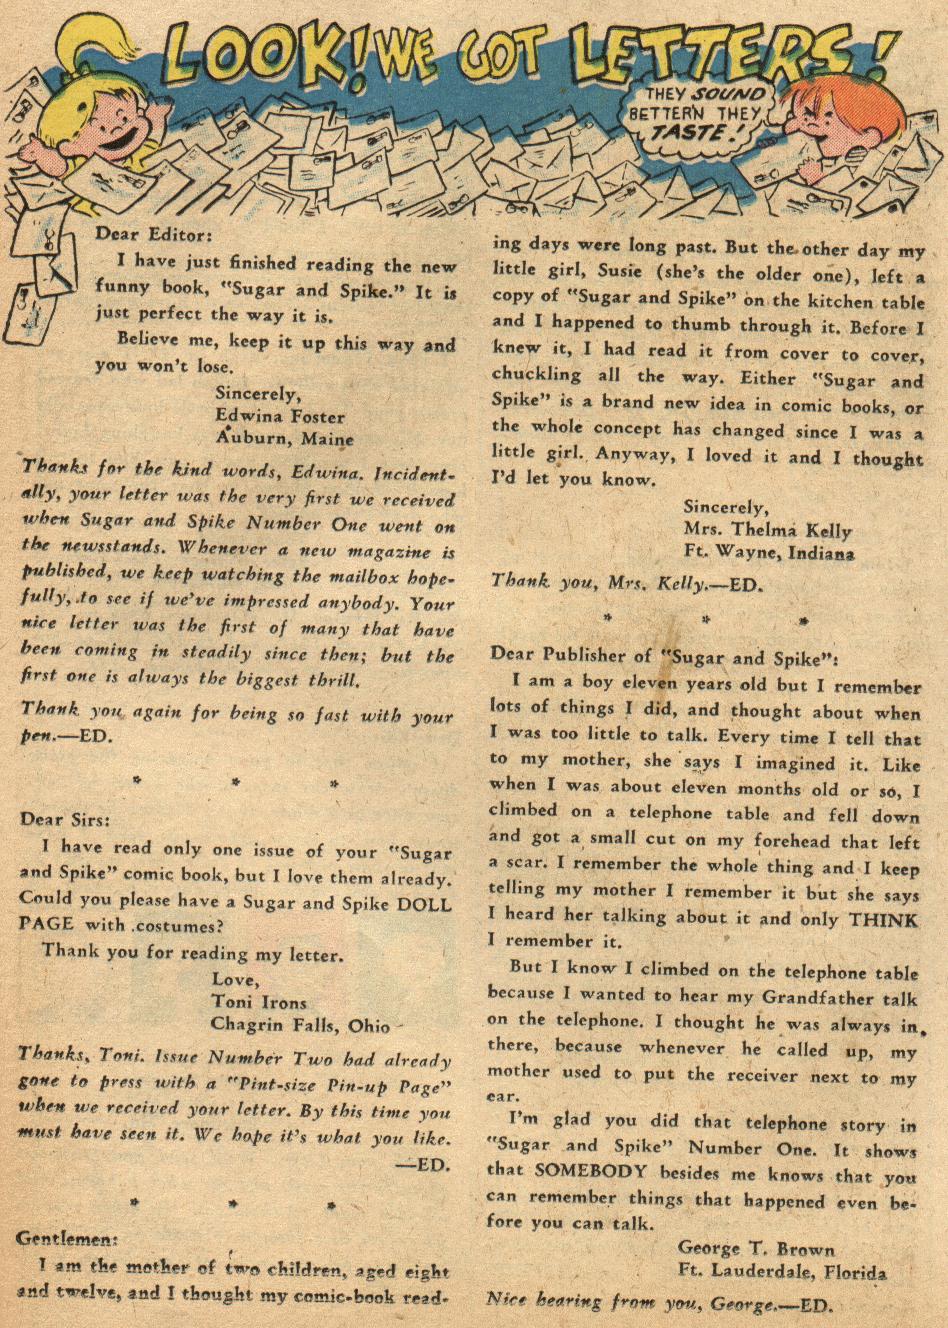 LOOK! WE GOT LETTERS!
THEY SOUND
BETTER'N THEY
TASTE!
Dear Editor:
I have just finished reading the new
funny book, "Sugar and Spike." It is
just perfect the way it is.
Believe me, keep it up this way and
you won't lose.
Sincerely,
Edwina Foster
Auburn, Maine
Thanks for the kind words, Edwina. Incident-
ally, your letter was the very first we received
when Sugar and Spike Number One went on
the newsstands. Whenever a new magazine is
published, we keep watching the mailbox hope-
fully, to see if we've impressed anybody. Your
nice letter was the first of many that have
been coming in steadily since then; but the
first one is always the biggest thrill.
Thank you again for being so fast with your
pen.—ED.
* * *
Dear Sirs:
I have read only one issue of your "Sugar
and Spike" comic book, but I love them already.
Could you please have a Sugar and Spike DOLL
PAGE with costumes?
Thank you for reading my letter.
Love,
Toni Irons
Chagrin Falls, Ohio
Thanks, Toni. Issue Number Two had already
gone to press with a "Pint-size Pin-up Page"
when we received your letter. By this time you
must have seen it. We hope it's what you like.
—ED.
* * *
Gentlemen:
I am the mother of two children, aged eight
and twelve, and I thought my comic-book read-
ing days were long past. But the other day my
little girl, Susie (she's the older one), left a
copy of "Sugar and Spike" on the kitchen table
and I happened to thumb through it. Before I
knew it, I had read it from cover to cover,
chuckling all the way. Either "Sugar and
Spike" is a brand new idea in comic books, or
the whole concept has changed since I was a
little girl. Anyway, I loved it and I thought
I'd let you know.
Sincerely,
Mrs. Thelma Kelly
Ft. Wayne, Indiana
Thank you, Mrs. Kelly.—ED.
* * *
Dear Publisher of "Sugar and Spike":
I am a boy eleven years old but I remember
lots of things I did, and thought about when
I was too little to talk. Every time I tell that
to my mother, she says I imagined it. Like
when I was about eleven months old or so, I
climbed on a telephone table and fell down
and got a small cut on my forehead that left
a scar. I remember the whole thing and I keep
telling my mother I remember it but she says
I heard her talking about it and only THINK
I remember it.
But I know I climbed on the telephone table
because I wanted to hear my Grandfather talk
on the telephone. I thought he was always in
there, because whenever he called up, my
mother used to put the receiver next to my
ear.
I'm glad you did that telephone story in
"Sugar and Spike" Number One. It shows
that SOMEBODY besides me knows that you
can remember things that happened even be-
fore you can talk.
George T. Brown
Ft. Lauderdale, Florida
Nice hearing from you, George.—ED.